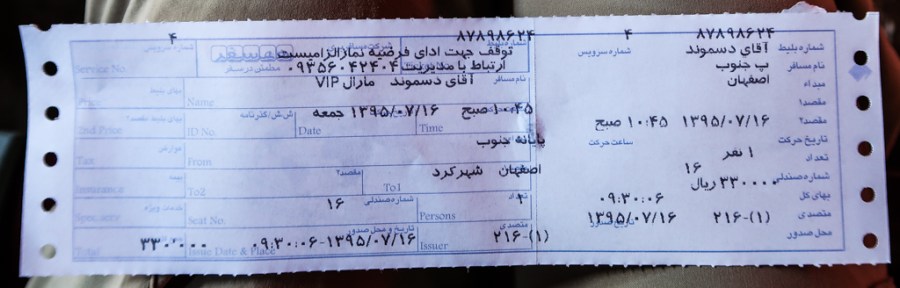 ۸۷۸۹۸۶۲۴
۴
شماره بلیط
آقای دسموند
شماره سرویس
نام مسافر
پ جنوب
مبداء
اصفهان
مقصد۱
مقصد۲
۱۳۹۵/۰۷/۱۶
۱۰:۴۵ صبح
تاریخ حرکت
ساعت حرکت
تعداد
۱ نفر
شماره صندلی
۱۶
بهای کل
۳۳۰۰۰۰ ریال
متصدی
۰۹:۳۰:۰۶
محل صدور
۲۱۶-(۱)
۱۳۹۵/۰۷/۱۶
۸۷۸۹۸۶۲۴
۴
توقف جهت ادای فرضیه نمازالزامیست
شماره سرویس
Service No.
ارتباط با مدیریت ۰۹۳۵۶۰۴۲۴۰۴
نام مسافر
آقای دسموند مارال VIP
Name
بهای بلیط
Price
۱۰:۴۵ صبح
Time
۱۳۹۵/۰۷/۱۶ جمعه
Date
ش.ش/گذرنامه
ID No.
2nd Price
پایانه جنوب
From
عوارض
Tax
اصفهان
To1
مقصد۲
شهرکرد
To2
بیمه
Insurance
تعداد
۱
Persons
شماره صندلی
۱۶
Seat No.
خدمات ویژه
Spec.serv
متصدی
۲۱۶-(۱)
Issuer
تاریخ و محل صدور
۰۹:۳۰:۰۶-۱۳۹۵/۰۷/۱۶
Issue Date & Place
۳۳۰۰۰۰
Total